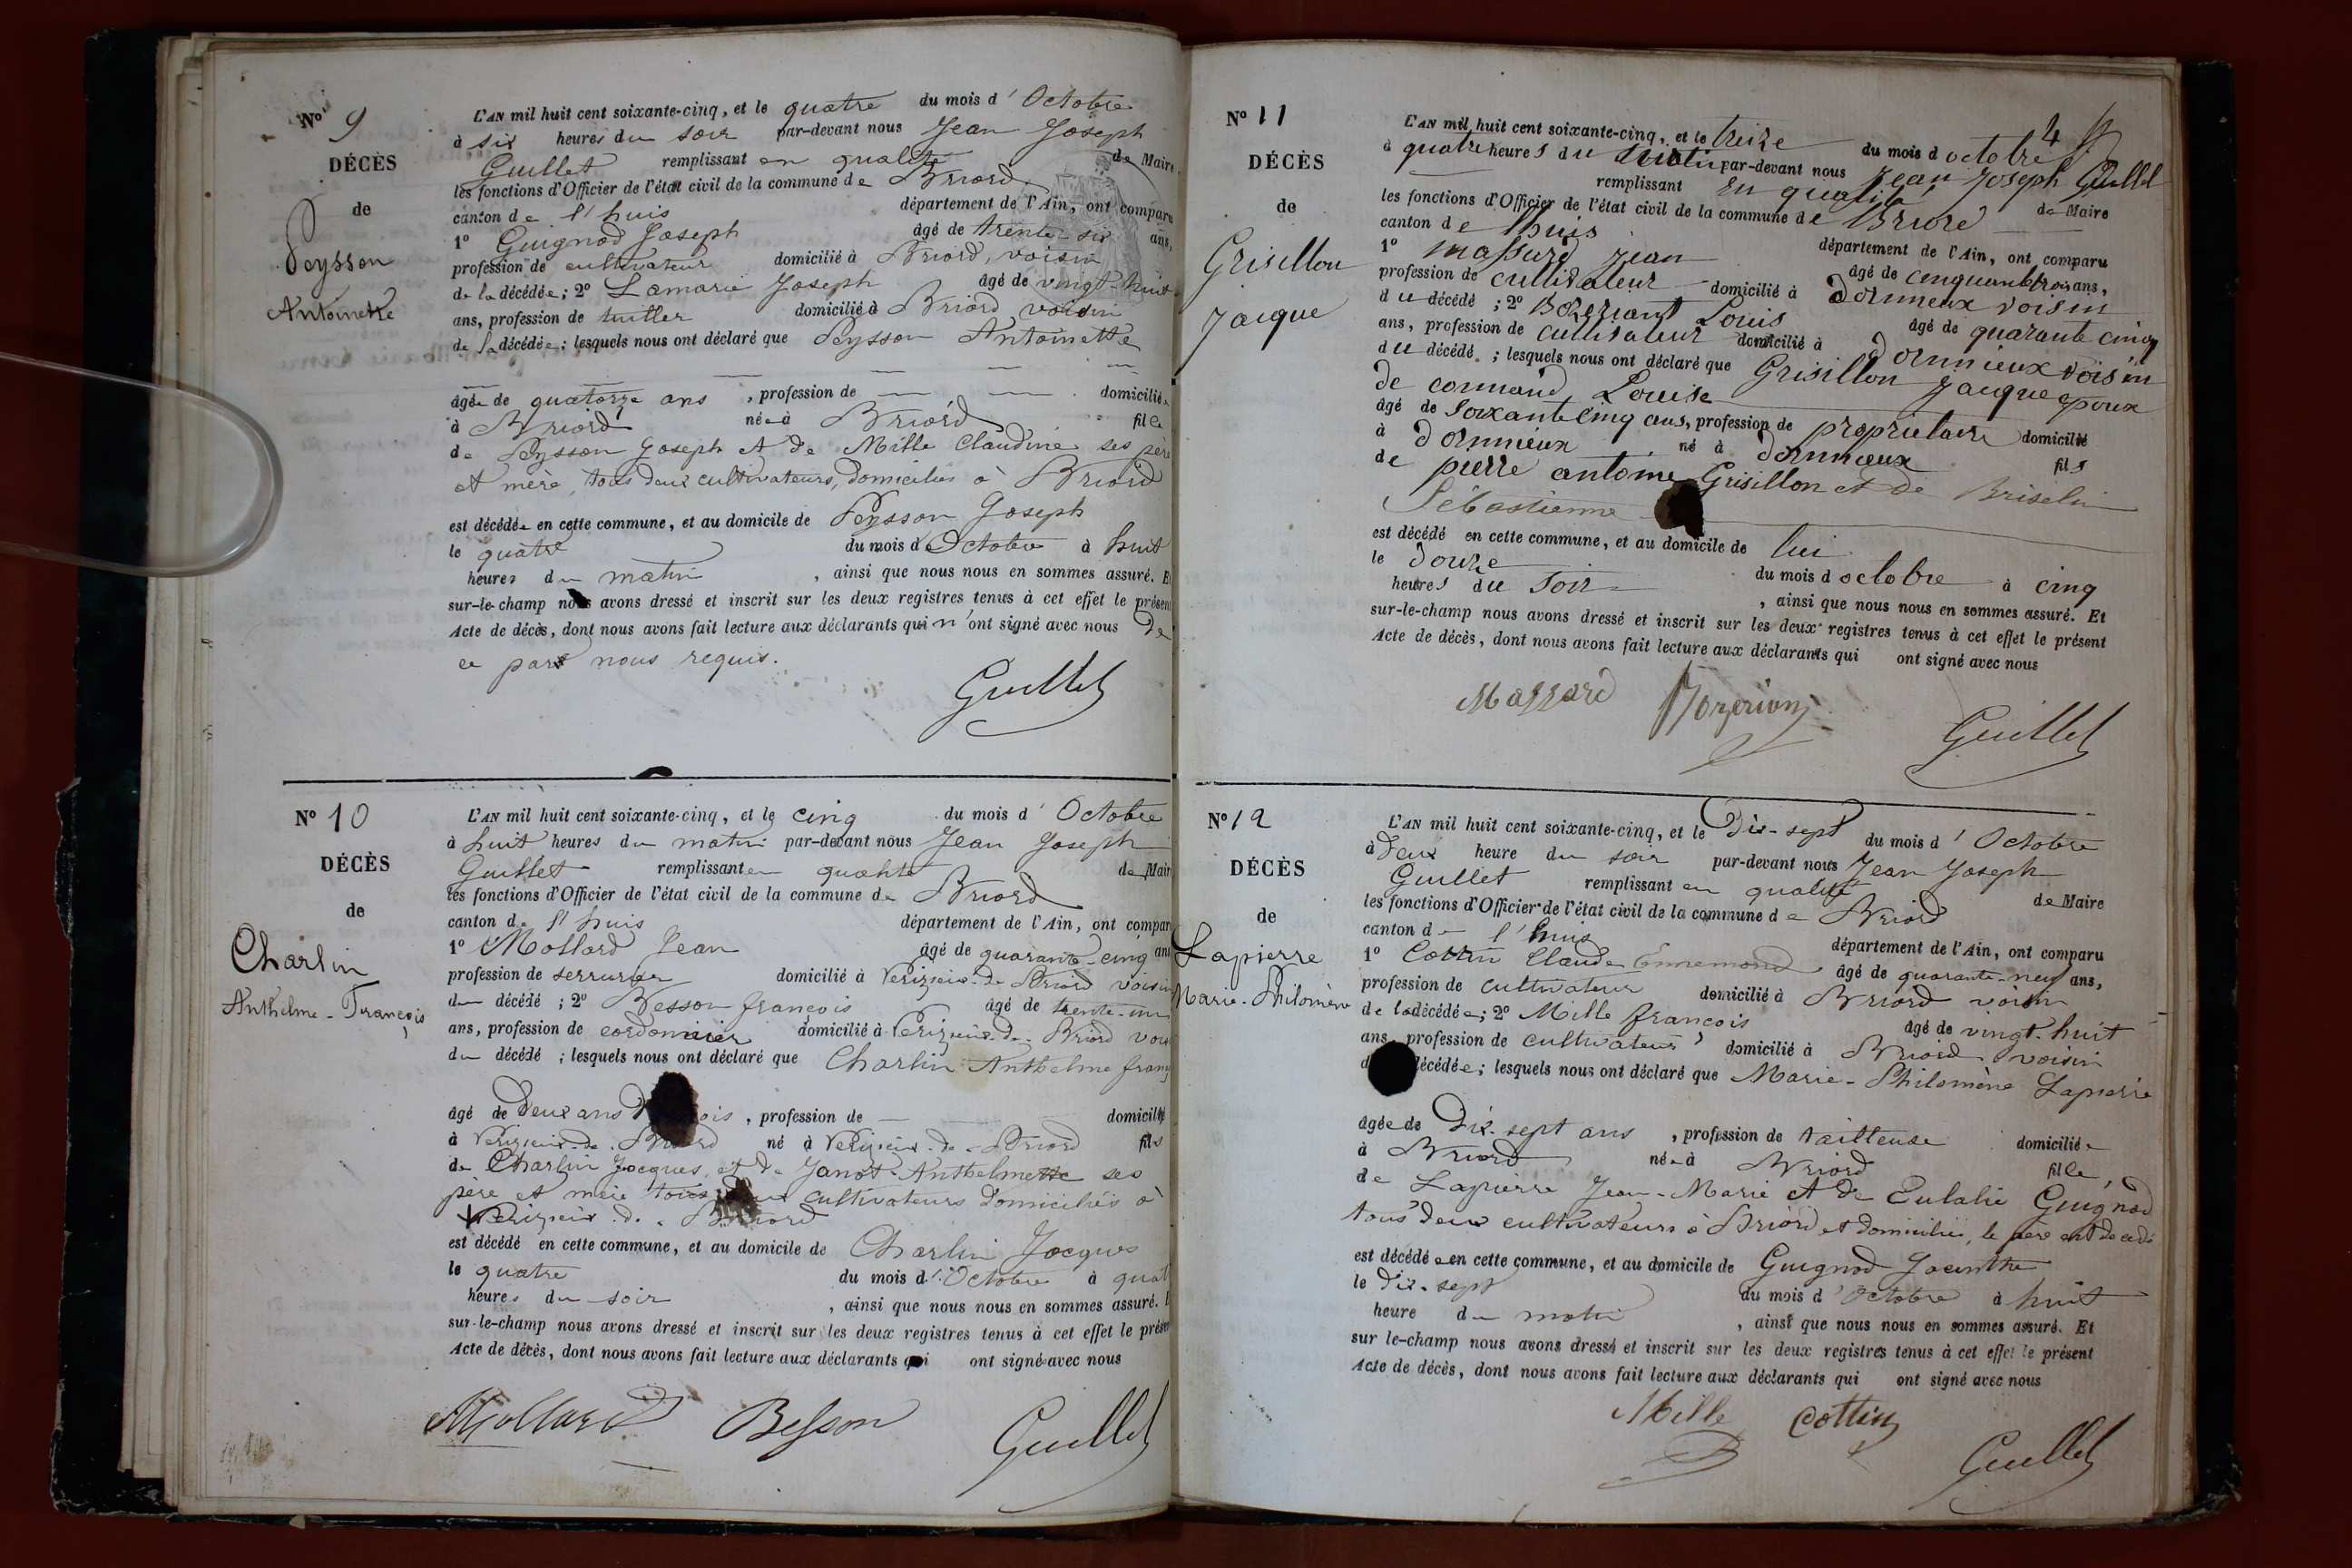 N° 9
DÉCÈS
de
Peysson
Antoinette
L'AN mil huit cent soixante-cinq, et le quatre du mois d'Octobre
à six heures du soir par-devant nous Jean Joseph
Guillet remplissant en qualité de Maire
les fonctions d'Officier de l'état civil de la commune de Briord
canton de l'huis département de l'Ain, ont comparu
1° Guignod Joseph âgé de trente-six ans,
profession de cultivateur domicilié à Briord, voisin
de la décédée; 2° Lamarie Joseph âgé de vingt-huit
ans, profession de domicilié à Briord voisin
de la décédée; lesquels nous ont déclaré que Peysson Antoinette
âgée de quatorze ans, profession de — — domiciliée
à Briord née à Briord fille
de Peysson Joseph et de Mille Claudine ses père
et mère, tous deux cultivateurs, domiciliés à Briord
est décédée en cette commune, et au domicile de Peysson Joseph
le quatre du mois d'Octobre à huit
heures du matin, ainsi que nous nous en sommes assuré. Et
sur-le-champ nous avons dressé et inscrit sur les deux registres tenus à cet effet le présent
Acte de décès, dont nous avons fait lecture aux déclarants qui n'ont signé avec nous de
ce par nous requis.
Guillet
N° 10
DÉCÈS
de
Charlin
Anthelme-François
L'AN mil huit cent soixante-cinq, et le cinq du mois d'Octobre
à huit heures du matin par-devant nous Jean Joseph
Guillet remplissant en qualité de Mair
les fonctions d'Officier de l'état civil de la commune de Briord
canton de l'huis département de l'Ain, ont compar
1° Mollard Jean âgé de quarante-cinq ans
profession de serrurier domicilié à Verizieu-de-Briord voisin
du décédé; 2° Besson françois âgé de trente-un
ans, profession de cordonnier domicilié à Verizieu-de-Briord vois
du décédé; lesquels nous ont déclaré que Charlin Anthelme franç
âgé de deux ans ois, profession de — domicilié
à Verizieu-de-Briord né à Verizieu-de-Briord fils
de Charlin Jacques et de Janot Anthelmette ses
père et mère tous deux cultivateurs domiciliés à
Verizieu-de-Briord
est décédé en cette commune, et au domicile de Charlin Jacques
le quatre du mois d'Octobre à quat
heures du soir, ainsi que nous nous en sommes assuré. E
sur-le-champ nous avons dressé et inscrit sur les deux registres tenus à cet effet le présen
Acte de décès, dont nous avons fait lecture aux déclarants qui ont signé avec nous
Mollard Besson Guillet
N° 11
DÉCÈS
de
Grisillon
Jacque
4
L'AN mil huit cent soixante-cinq, et le treize du mois d octobre
à quatre heures du matin par-devant nous Jean Joseph Guillet
remplissant en qualité de Maire
les fonctions d'Officier de l'état civil de la commune de Briord
canton de lhuis département de l'Ain, ont comparu
1° Massard Jean âgé de cinquante trois ans,
profession de cultivateur domicilié à dornieux voisin
du décédé; 2° Bozeriant Louis âgé de quarante cinq
ans, profession de cultivateur domicilié à dornieux voisin
du décédé; lesquels nous ont déclaré que Grisillon Jacque époux
de cormand Louise
âgé de soixante cinq ans, profession de propriétaire domicilié
à dornieux né à dornieux fils
de pierre antoine Grisillon et de Briselin
Sébastienne
est décédé en cette commune, et au domicile de lui
le douze du mois d octobre à cinq
heures du soir, ainsi que nous nous en sommes assuré. Et
sur-le-champ nous avons dressé et inscrit sur les deux registres tenus à cet effet le présent
Acte de décès, dont nous avons fait lecture aux déclarants qui ont signé avec nous
Massard Bozerian Guillet
N° 12
DÉCÈS
de
Lapierre
Marie-Philomène
L'AN mil huit cent soixante-cinq, et le Dix-sept du mois d'Octobre
à deux heure du soir par-devant nous Jean Joseph
Guillet remplissant en qualité de Maire
les fonctions d'Officier de l'état civil de la commune de Briord
canton de l'huis département de l'Ain, ont comparu
1° Cottin Claude Ennemond âgé de quarante-neuf ans,
profession de cultivateur domicilié à Briord voisin
de la décédée; 2° Mille françois âgé de vingt-huit
ans, profession de cultivateur domicilié à Briord voisin
d décédée; lesquels nous ont déclaré que Marie-Philomène Lapierre
âgée de Dix-sept ans, profession de tailleuse domiciliée
à Briord née à Briord fille,
de Lapierre Jean-Marie et de Eulalie Guignod
tous deux cultivateurs à Briord et domiciliés, le père est décédé
est décédée en cette commune, et au domicile de Guignod Jacinthe
le dix-sept du mois d'Octobre à huit
heure du matin, ainsi que nous nous en sommes assuré. Et
sur le-champ nous avons dressé et inscrit sur les deux registres tenus à cet effet le présent
Acte de décès, dont nous avons fait lecture aux déclarants qui ont signé avec nous
Mille Cottin Guillet